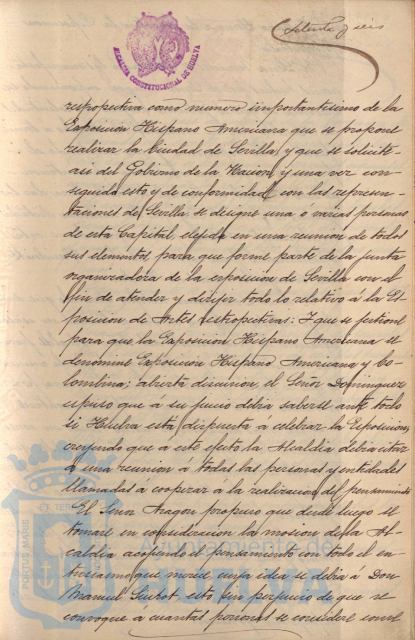 Setenta y seis
ALCALDIA CONSTITUCIONAL DE HUELVA
respopectiva como número importantisimo de la
Exposición Hispano Americana que se propone
realizar la Ciudad de Sevilla, y que se solicite
asi del Gobierno de la Nacion, y una vez con-
seguido esto y de conformidad con las represen-
taciones de Sevilla se designe una ó varias personas
de esta Capital elejida en una reunion de todos
sus elementos, para que forme parte de la junta
organizadora de la exposicion de Sevilla con el
fin de atender y dirijir todo lo relativo á la Es-
posicion de Artes retropectivas: Y que se gestione
para que la Exposicion Hispano Americana se
denomine Exposicion Hispano Americana y Co-
lombina: abierta discusion, el Señor Dominguez
espuso que á su juicio debia saberse ante todo
si Huelva está dispuesta á celebrar la Esposicion,
creyendo que á este efecto la Alcaldia debia citar
á una reunion á todas las personas y entidades
llamadas á cooperar á la realizacion del pensamiento
El Señor Aragon propuso que desde luego se
tomase en consideracion la mocion de la Al-
caldia acojiendo el pensamiento con todo el en-
tusiasmo que merece, cuya idea se debia á Don
Manuel Siurot, esto sin perjuicio de que se
convoque á cuantas personas se considere conve
PORTUS MARIS ET TERR
Ayuntamiento de
HUELVA